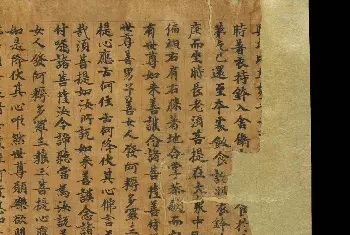 時著衣持鉢入舍衛
第乞已還至本處飯食訖收衣鉢
座而坐時長老須菩提在大衆中
偏袒右肩右膝著地合掌恭敬而白
有世尊如來善護念諸菩薩善付
世尊善男子善女人發阿耨多羅三
提心應云何住云何降伏其心佛言善
哉須菩提如汝所說如來善護念諸
付囑諸菩薩汝今諦聽當為汝說
女人發阿耨多羅三藐三菩提心應
如是降伏其心唯然世尊願樂欲聞